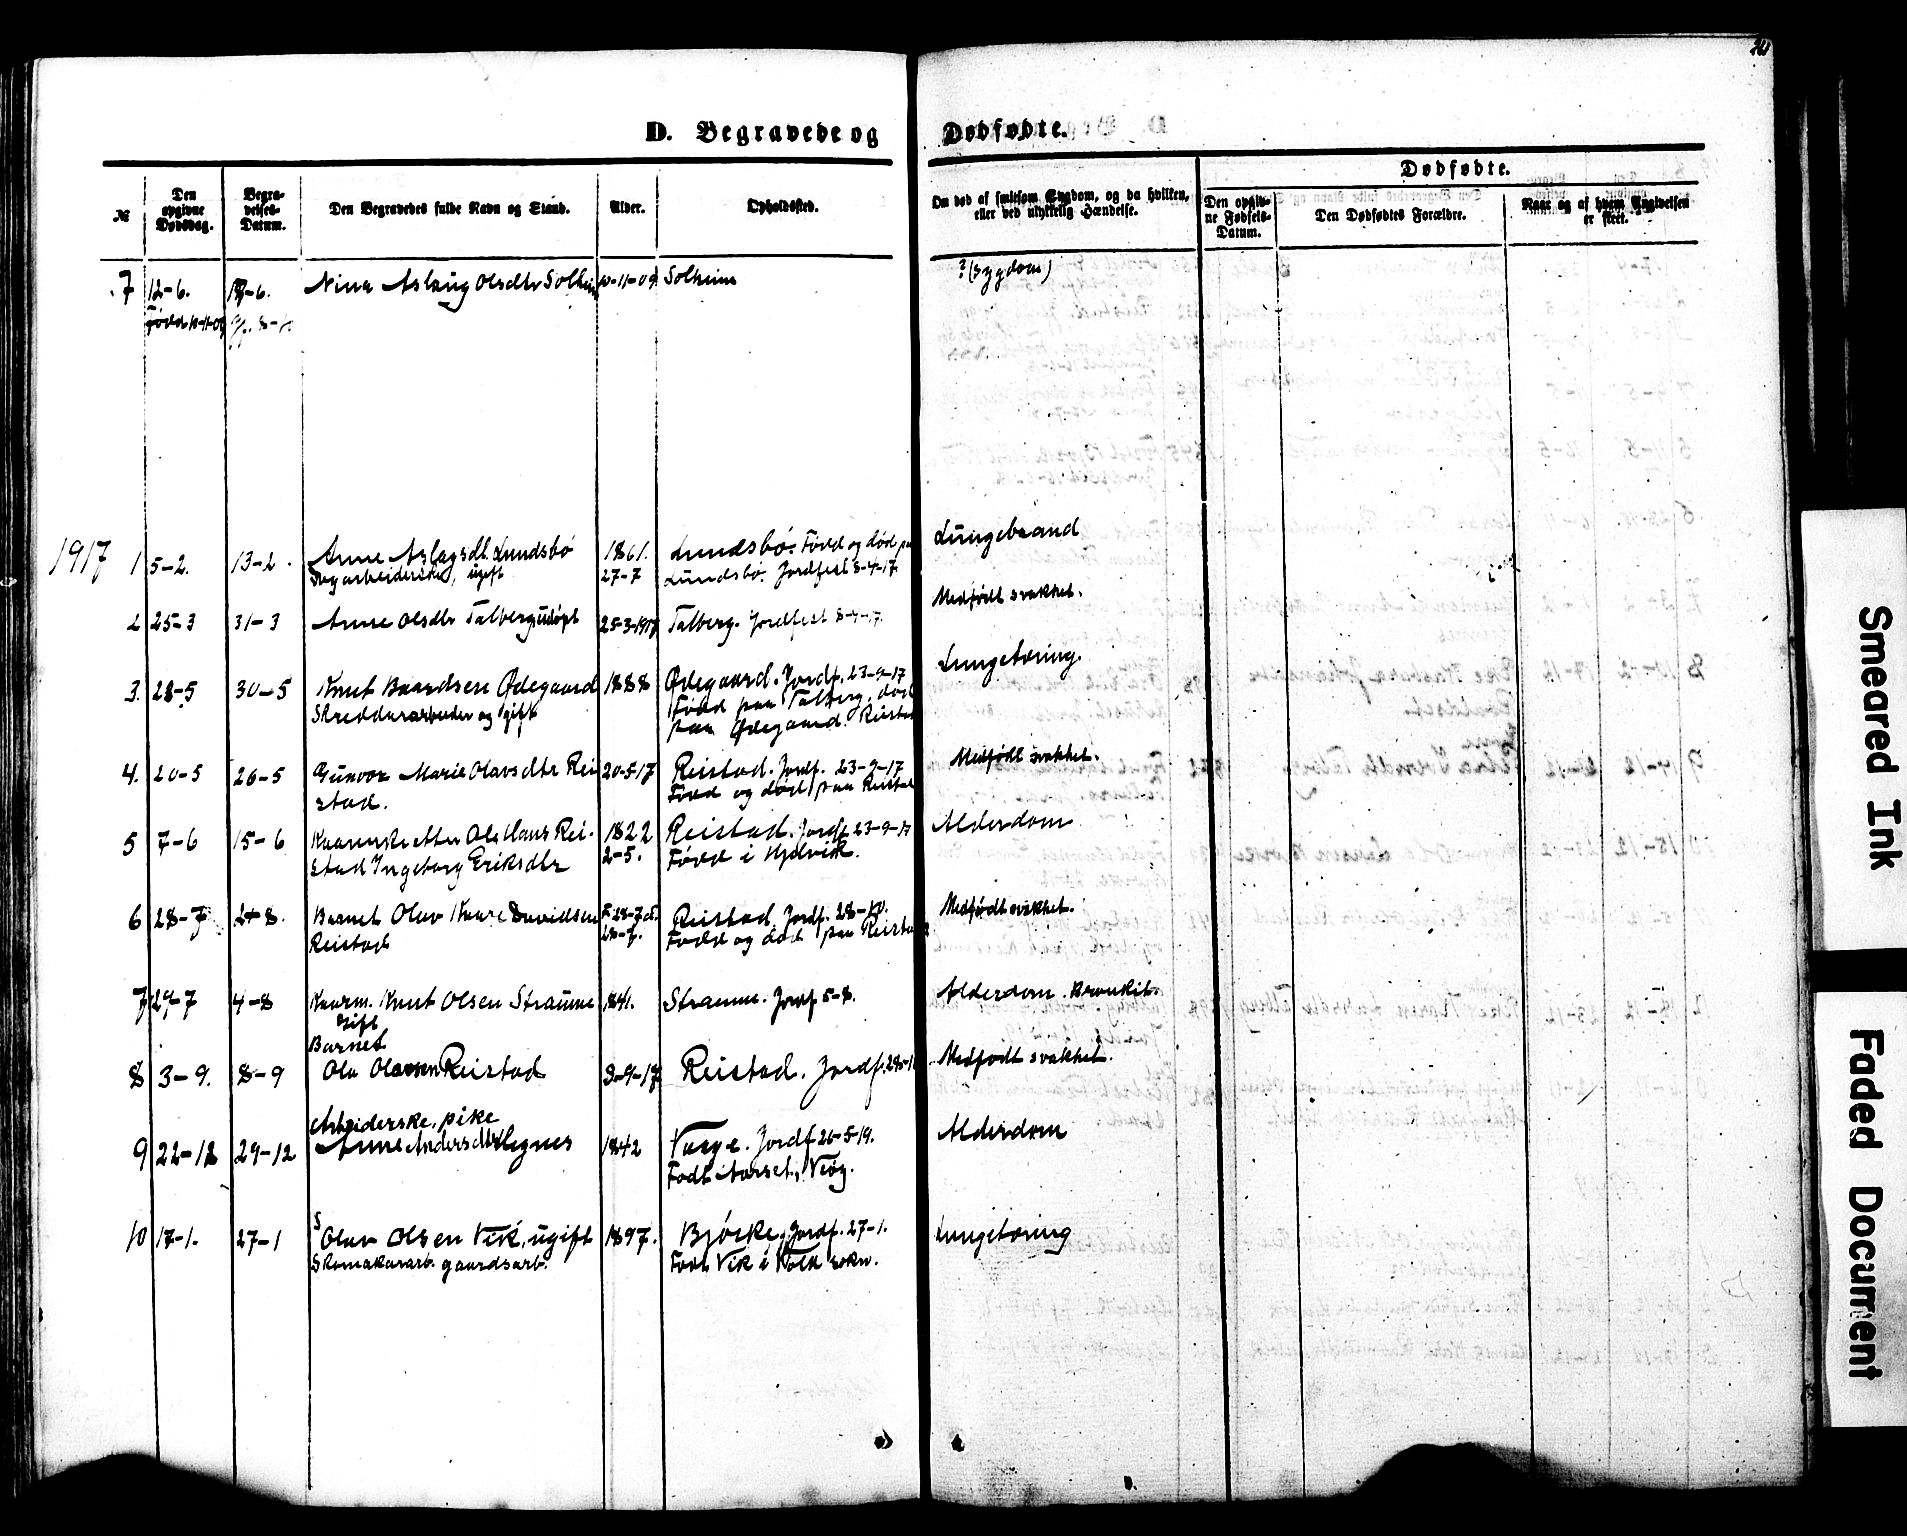 D. Begravede og Dødfødte.
№
Den opgivne Dødsdag.
Begravelses-Datum.
Den Begravedes fulde Navn og Stand.
Alder.
Opholdssted.
Om død af smitsom Sygdom, og da hvilken, eller ved ulykkelig Hændelse.
Dødfødte.
Den opgivne Fødsels-Datum.
Den Dødfødtes Forældre.
Naar og af hvem Angivelsen er skeet.
7 12-6. 18-6. Nina Aslaug Olsdtr Solheim 10-11-09 Solheim ? (sygdom)
Fødd 10-11-09
1917
1 5-2. 13-2. Anne Aslagsdt. Lundsbø 1861. Lundsbø. Fødd og død paa Lungebrand
ugift 27-7 Lundsbø. Jordfest 8-4-17
2 25-3 31-3 Anne Olsdtr Talberg, udøpt 25-3-1917 Talberg. Jordfest 8-4-17. Medfødt svakhet.
3. 28-5 30-5 Knut Baardsen Ødegaard 1888 Ødegaard. Jordf. 23-9-17 Lungetæring.
Skreddararbeider og gift Fødd paa Talberg, død
paa Ødegaard. Reistad
4. 20-5 26-5 Gunvor Marie Olavsdtr Rei 20-5-17 Reistad. Jordf. 23-9-17 Medfødt svakhet.
stad. Fødd og død paa Reistad
5 7-6 15-6 Kaarenke etter Ole Hans Rei- 1822 Reistad. Jordf. 23-9-17 Alderdom
stad Ingeborg Eriksdtr 2-5. Fødd i Mjelvik.
6 28-7 2-8. Barnet Olav Kaare Davidsen F. 28-7 d. Reistad. Jordf. 28-10. Medfødt svakhet.
Reistad 28-7. Fødd og død paa Reistad
7 29-7 4-8 Kaarm. Knut Olsen Straume 1841. Straume. Jordf 5-8. Alderdom. Bronkit.
gift
Barnet
8 3-9. 8-9 Ola Olavsen Reistad 3-9-17 Reistad. Jordf. 28-10 Medfødt svakhet.
Arbeiderske, pike
9 22-12 29-12 Anne Andersdtr Hegnes 1842 Vaage. Jordf 26-5-19. Alderdom
Født Aarset, Veøy.
10 17-1. 27-1 Olav Olsen Vik, ugift 1897. Bjørke. Jordf. 27-1. Lungetæring
Skomakararb. gaardsarb. Født Vik i Vold sokn.
Smeared Ink
Faded Document